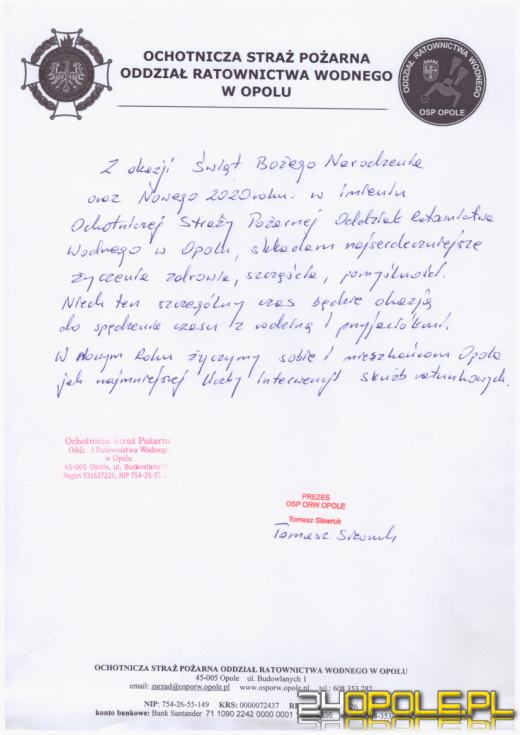 OCHOTNICZA STRAŻ POŻARNA
ODDZIAŁ RATOWNICTWA WODNEGO
W OPOLU
ODDZIAŁ RATOWNICTWA WODNEGO
OSP OPOLE
Z okazji Świąt Bożego Narodzenia
oraz Nowego 2020 roku. w imieniu
Ochotniczej Straży Pożarnej Oddział Ratownictwa
Wodnego w Opolu, składam najserdeczniejsze
życzenia zdrowia, szczęścia, pomyślności.
Niech ten szczególny czas będzie okazją
do spędzenia czasu z rodziną i przyjaciółmi.
W Nowym Roku życzymy sobie i mieszkańcom Opola
jak najmniejszej liczby interwencji służb ratunkowych.
Ochotnicza Straż Pożarna
Oddz ł Ratownictwa Wodnego
w Opolu
45-005 Opole, ul. Budowlanych
Regon 531637226, NIP 754-26-55-
PREZES
OSP ORW OPOLE
Tomasz Siewruk
Tomasz Siewruk
OCHOTNICZA STRAŻ POŻARNA ODDZIAŁ RATOWNICTWA WODNEGO W OPOLU
45-005 Opole ul. Budowlanych 1
email: zarzad@osporw.opole.pl www.osporw.opole.pl tel.: 608 353 282
NIP: 754-26-55-149 KRS: 0000072437
konto bankowe: Bank Santander 71 1090 2242 0000 0001
24OPOLE.PL